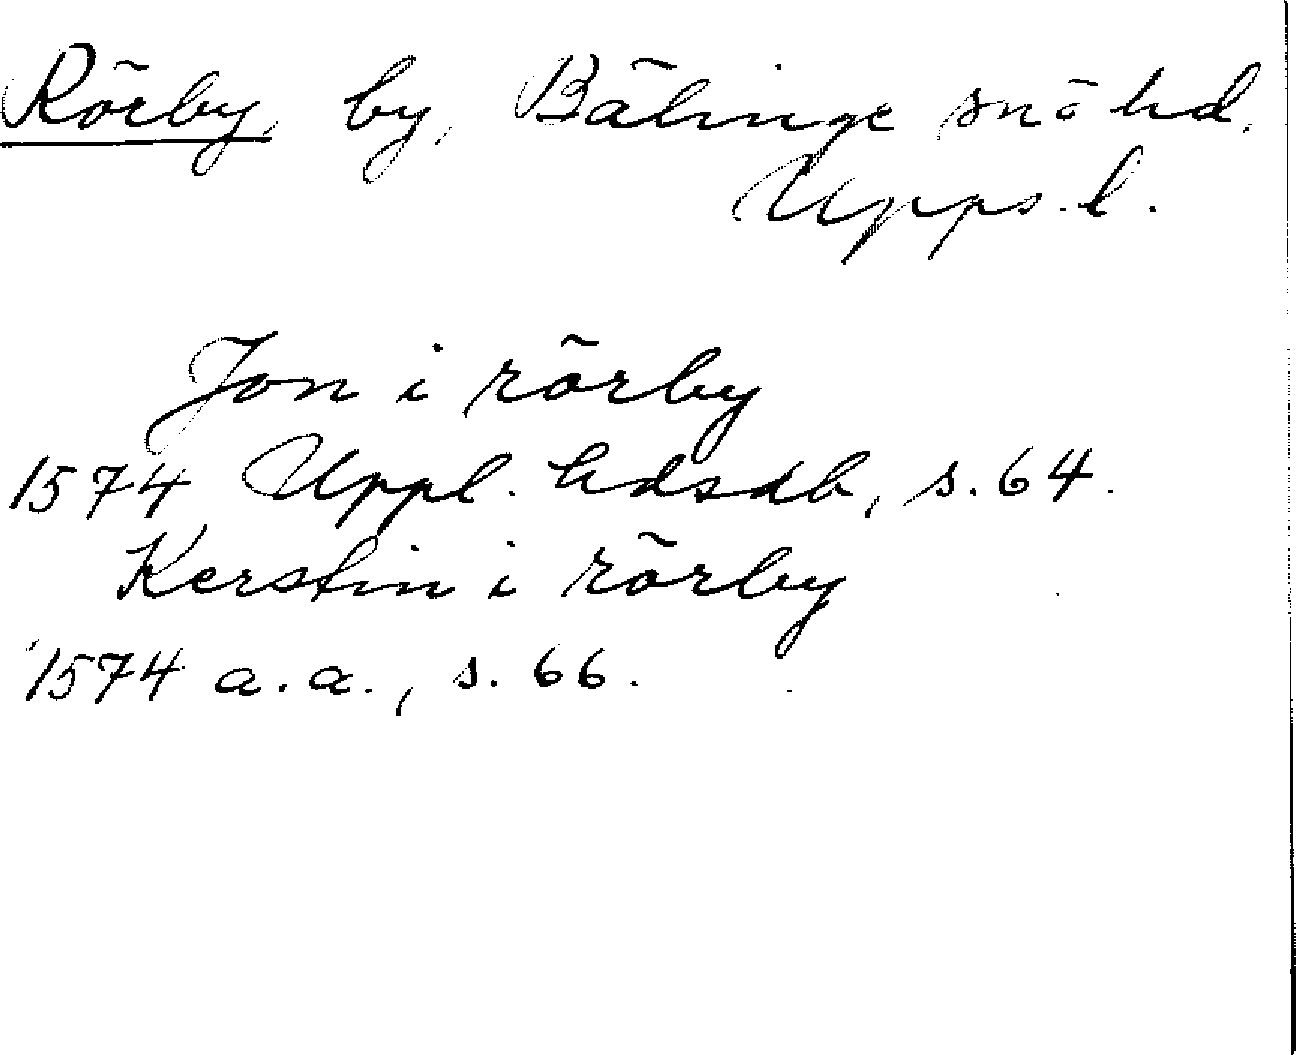 Rörby, by, Bälinge sn o hd,
Upps. l.
Jon i rörby
1574 Uppl. hdsdb, s. 64.
Kerstin i rörby
1574 a.a., s. 66.